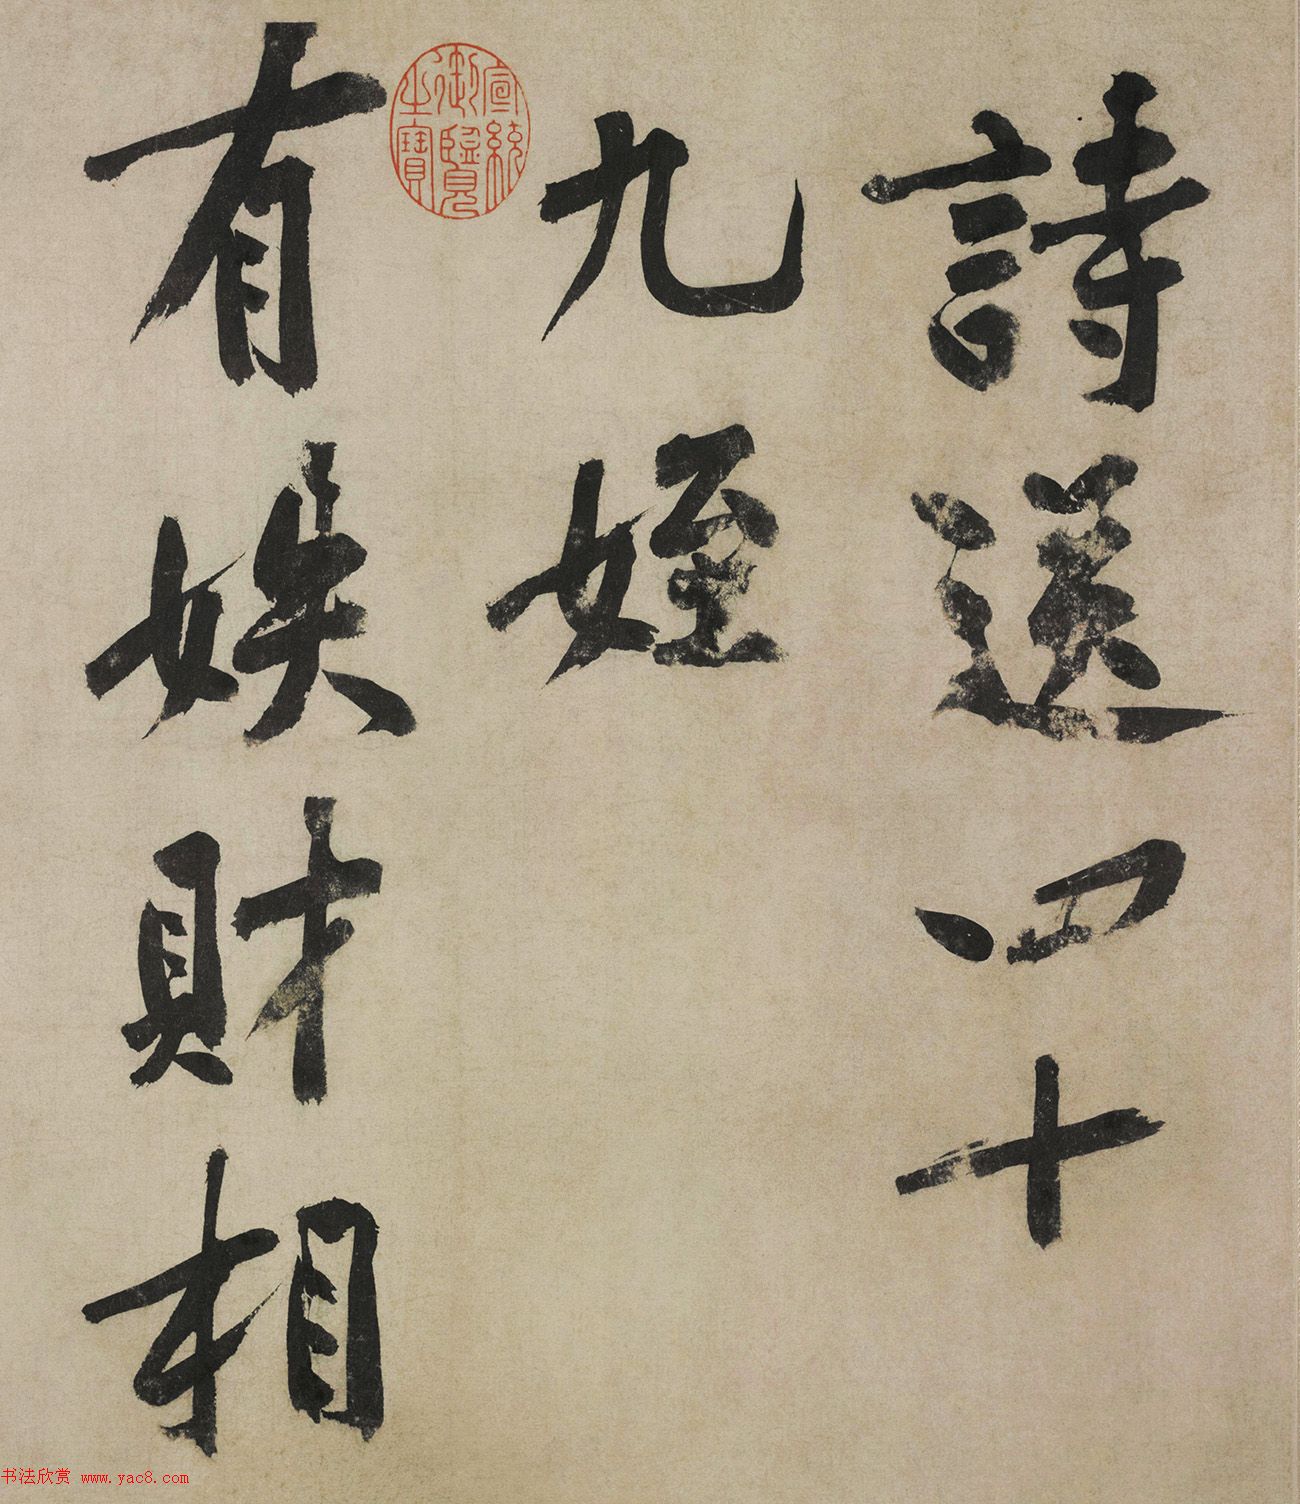 詩送四十
九姪
有娱財相
宣統
御覽
之寶
书法欣赏 www.yac8.com